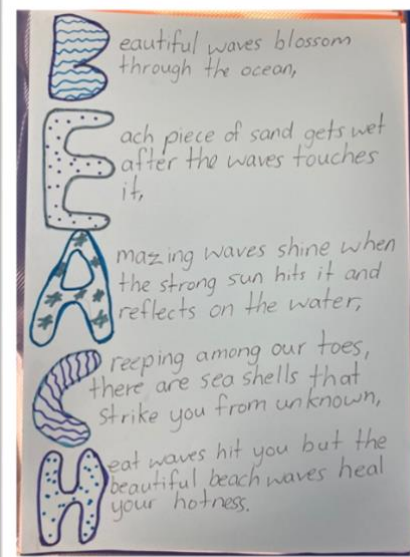 Beautiful waves blossom
through the ocean,
Each piece of sand gets wet
after the waves touches
it,
Amazing waves shine when
the strong sun hits it and
reflects on the water,
Creeping among our toes,
there are sea shells that
strike you from unknown,
Heat waves hit you but the
beautiful beach waves heal
your hotness.